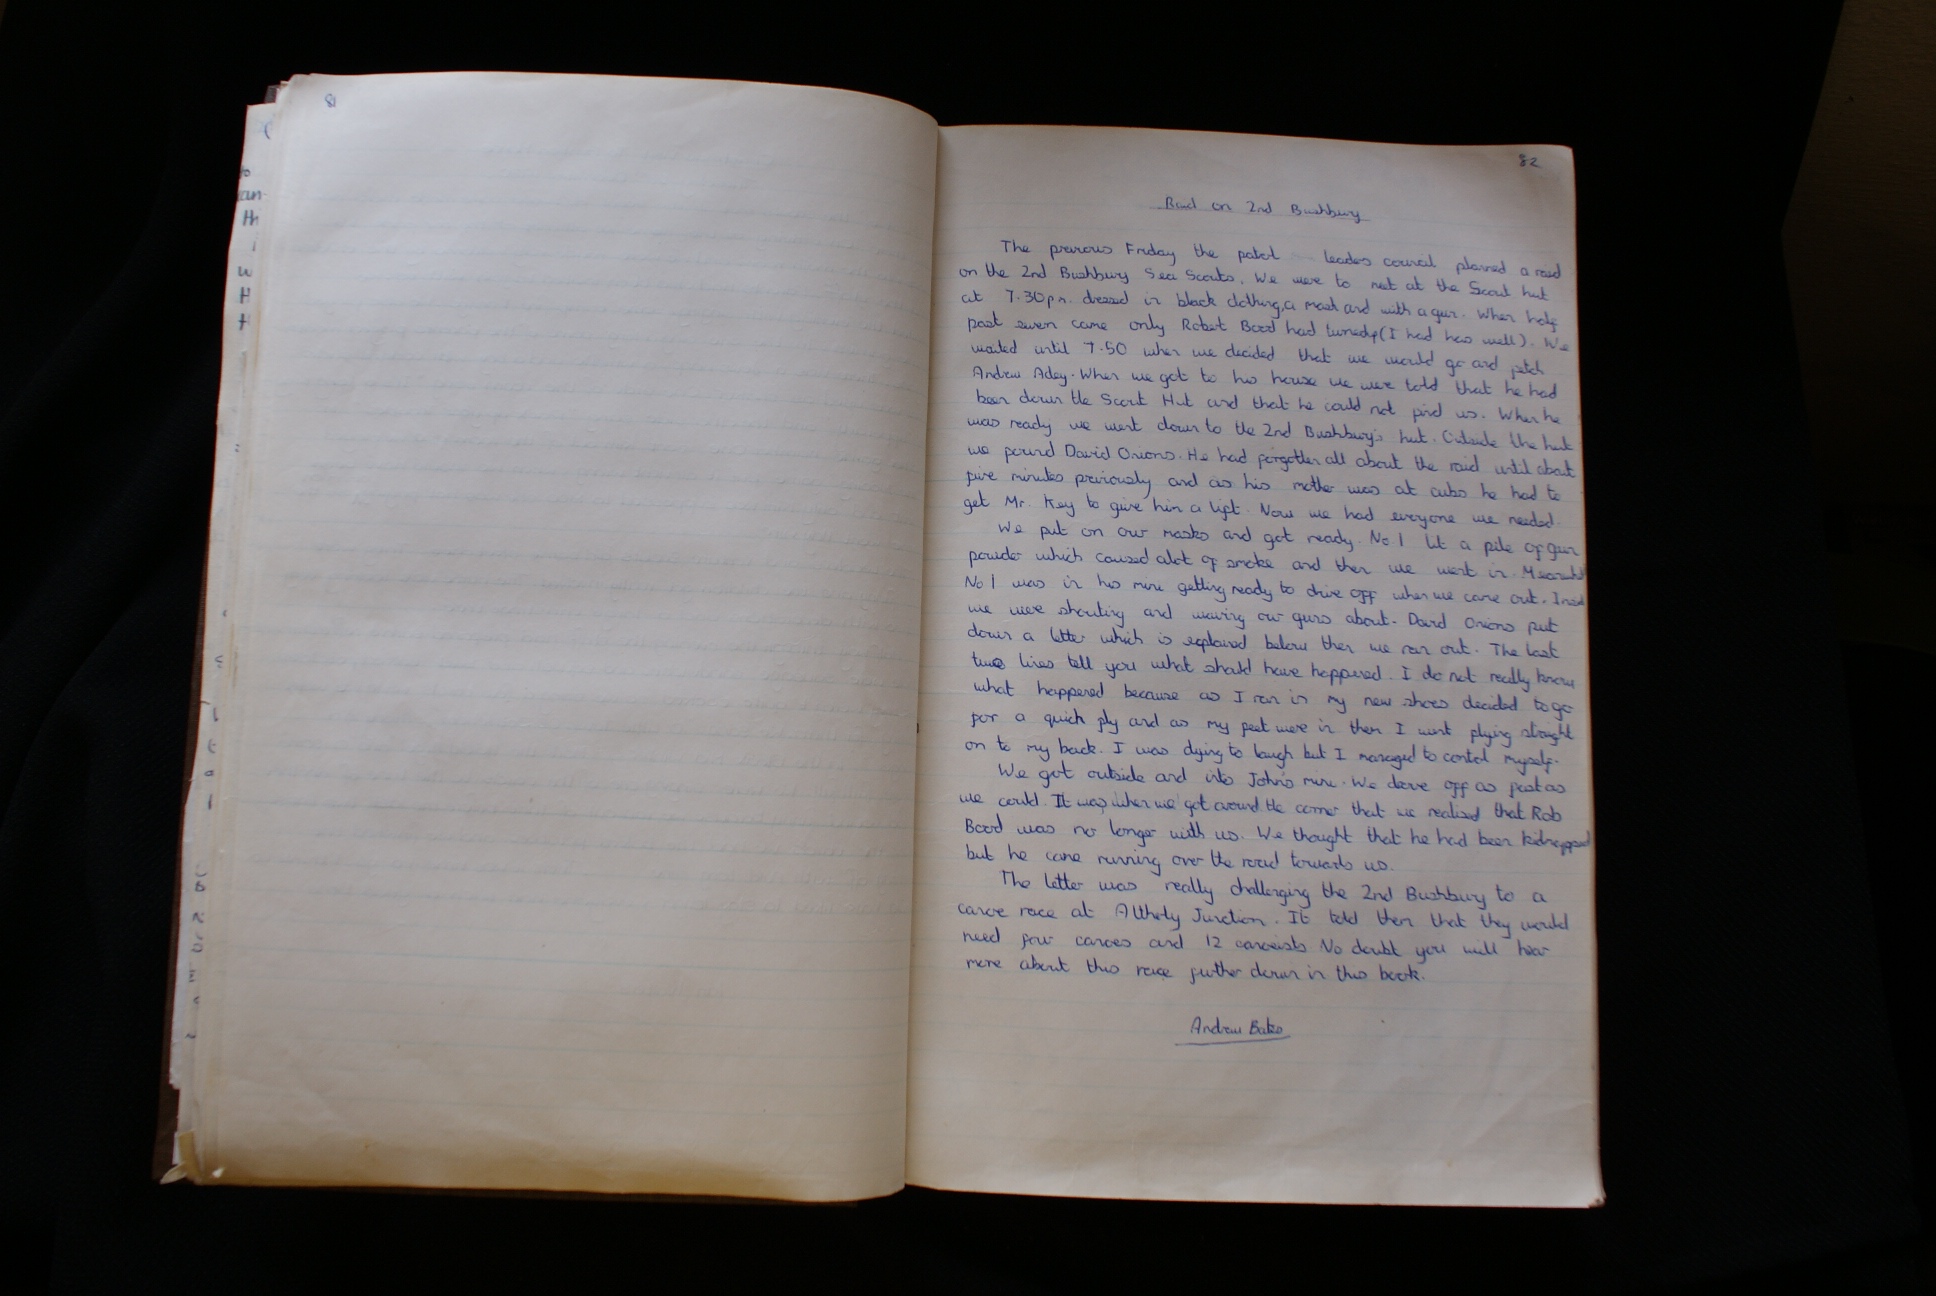 81
82
Raid on 2nd Bushbury
The previous Friday the patrol leaders council planned a raid
on the 2nd Bushbury Sea Scouts. We were to met at the Scout hut
at 7.30pm. dressed in black clothing, a mask and with a gun. When half
past seven came only Robert Bood had turned up (I had has well). We
waited until 7.50 when we decided that we would go and fetch
Andrew Adey. When we got to his house we were told that he had
been down the Scout Hut and that he could not find us. When he
was ready we went down to the 2nd Bushbury's hut. Outside the hut
we found David Onions. He had forgotten all about the raid until about
five minutes previously and as his mother was at cubs he had to
get Mr. Key to give him a lift. Now we had everyone we needed.
We put on our masks and got ready. No.1 lit a pile of gun
powder which caused alot of smoke and then we went in. Meanwhile
No 1 was in his mini getting ready to drive off when we came out. Inside
we were shouting and waving our guns about. David Onions put
down a letter which is explained below then we ran out. The last
two lines tell you what should have happened. I do not really know
what happened because as I ran in my new shoes decided to go
for a quick fly and as my feet were in them I went flying straight
on to my back. I was dying to laugh but I managed to control myself.
We got outside and into John's mini. We drove off as fast as
we could. It was when we got around the corner that we realised that Rob
Bood was no longer with us. We thought that he had been kidnapped
but he came running over the road towards us.
The letter was really challenging the 2nd Bushbury to a
canoe race at Junction. It told them that they would
need four canoes and 12 canoeists No doubt you will hear
more about this race further down in this book.
Andrew Bates